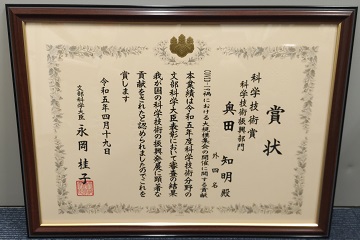 賞状
科学技術賞
科学技術振興部門
奥田 知明 殿
外四名
コロナ禍における大規模集会の開催に関する貢献
本業績は令和五年度科学技術分野の
文部科学大臣表彰において審査の結果
我が国の科学技術の振興発展に顕著な
貢献をされたと認められましたのでこれを
賞します
令和五年四月十九日
文部科学大臣 永岡桂子